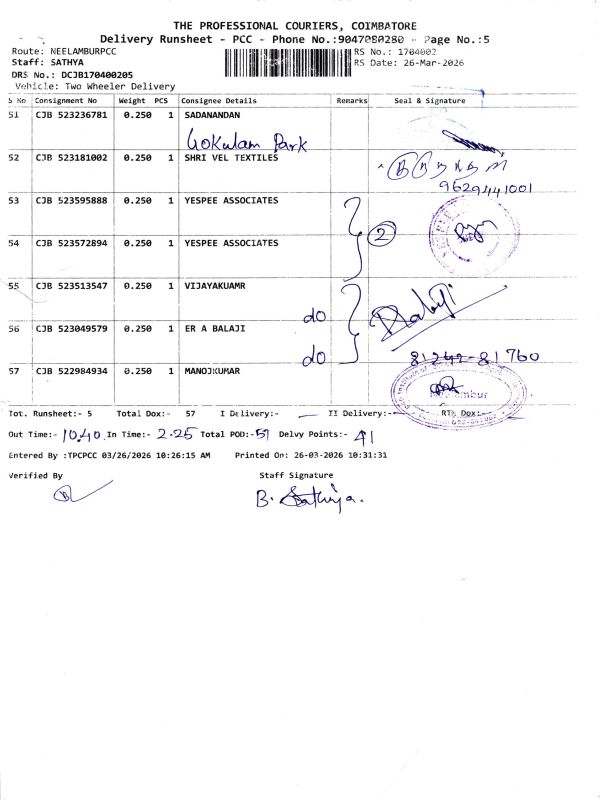 THE PROFESSIONAL COURIERS, COIMBATORE
Delivery Runsheet - PCC - Phone No.:9047080280 - Page No.:5
Route: NEELAMBURPCC RS No.: 1704002
Staff: SATHYA RS Date: 26-Mar-2026
DRS No.: DCJB170400205
Vehicle: Two Wheeler Delivery
S No Consignment No Weight PCS Consignee Details Remarks Seal & Signature
51 CJB 523236781 0.250 1 SADANANDAN
Gokulam Park
52 CJB 523181002 0.250 1 SHRI VEL TEXTILES
9629441001
53 CJB 523595888 0.250 1 YESPEE ASSOCIATES
2
54 CJB 523572894 0.250 1 YESPEE ASSOCIATES
55 CJB 523513547 0.250 1 VIJAYAKUAMR
do Balaji
56 CJB 523049579 0.250 1 ER A BALAJI
do 81242-81760
57 CJB 522984934 0.250 1 MANOJKUMAR
Tot. Runsheet:- 5 Total Dox:- 57 I Delivery:- II Delivery:- RTN Dox:-
Out Time:- 10.40 In Time:- 2.25 Total POD:- 57 Delvy Points:- 41
Entered By :TPCPCC 03/26/2026 10:26:15 AM Printed On: 26-03-2026 10:31:31
Verified By Staff Signature
B. Sathiya.